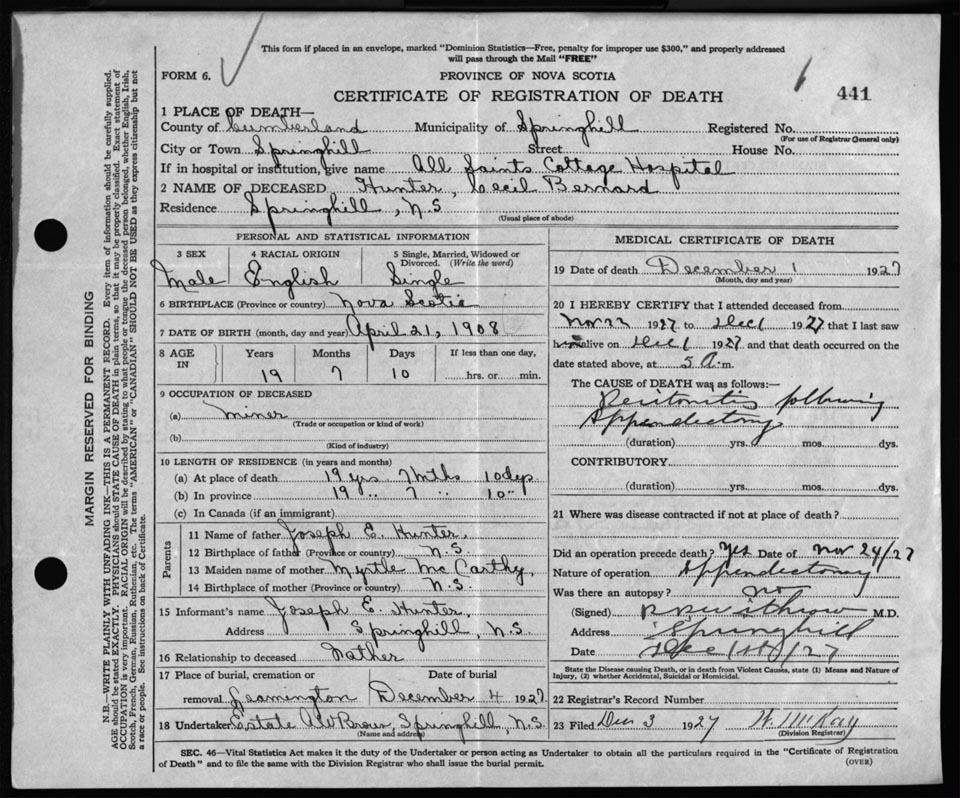 This form if placed in an envelope, marked "Dominion Statistics—Free, penalty for improper use $300," and properly addressed
will pass through the Mail "FREE"
FORM 6.
PROVINCE OF NOVA SCOTIA
CERTIFICATE OF REGISTRATION OF DEATH
441
1 PLACE OF DEATH—
County of Cumberland Municipality of Springhill Registered No.
(For use of Registrar General only)
City or Town Springhill Street House No.
If in hospital or institution, give name All Saints Cottage Hospital
2 NAME OF DECEASED Hunter, Cecil Bernard
Residence Springhill, N.S
(Usual place of abode)
PERSONAL AND STATISTICAL INFORMATION
3 SEX 4 RACIAL ORIGIN 5 Single, Married, Widowed or Divorced. (Write the word)
Male English Single
6 BIRTHPLACE (Province or country) Nova Scotia
7 DATE OF BIRTH (month, day and year) April 21, 1908
8 AGE IN Years Months Days If less than one day,
19 7 10 hrs. or min.
9 OCCUPATION OF DECEASED
(a) Miner
(Trade or occupation or kind of work)
(b)
(Kind of industry)
10 LENGTH OF RESIDENCE (in years and months)
(a) At place of death 19 yrs 7 mths 10 dys.
(b) In province 19 " 7 " 10 "
(c) In Canada (if an immigrant)
Parents
11 Name of father Joseph E. Hunter,
12 Birthplace of father (Province or country) N.S.
13 Maiden name of mother Myrtle McCarthy,
14 Birthplace of mother (Province or country) N.S.
15 Informant's name Joseph E. Hunter,
Address Springhill, N.S.
16 Relationship to deceased Father
17 Place of burial, cremation or removal Date of burial
Leamington December 4 1927.
18 Undertaker Estate A W Brown, Springhill, N.S.
(Name and address)
MEDICAL CERTIFICATE OF DEATH
19 Date of death December 1 1927
(Month, day and year)
20 I HEREBY CERTIFY that I attended deceased from
Nov 22 1927 to Dec 1 1927 that I last saw
him alive on Dec 1 1927 and that death occurred on the
date stated above, at 5 a.m.
The CAUSE of DEATH was as follows:—
Peritonitis following
Appendectomy
(duration) yrs. mos. dys.
CONTRIBUTORY
(duration) yrs. mos. dys.
21 Where was disease contracted if not at place of death?
Did an operation precede death? Yes Date of Nov 24/27
Nature of operation Appendectomy
Was there an autopsy? no
(Signed) Withrow M.D.
Address Springhill
Date Dec 1st/27
State the Disease causing Death, or in death from Violent Causes, state (1) Means and Nature of
Injury, (2) whether Accidental, Suicidal or Homicidal.
22 Registrar's Record Number
23 Filed Dec 3 1927 W. McKay
(Division Registrar)
SEC. 46—Vital Statistics Act makes it the duty of the Undertaker or person acting as Undertaker to obtain all the particulars required in the "Certificate of Registration
of Death" and to file the same with the Division Registrar who shall issue the burial permit.
(OVER)
MARGIN RESERVED FOR BINDING
N.B.—WRITE PLAINLY WITH UNFADING INK—THIS IS A PERMANENT RECORD. Every item of information should be carefully supplied.
AGE should be stated EXACTLY. PHYSICIANS should STATE CAUSE OF DEATH in plain terms, so that it may be properly classified. Exact statement of
OCCUPATION is very important. RACIAL ORIGIN will be described by stating to what people or tongue the deceased person belonged, whether English, Irish,
Scotch, French, German, Russian, Ruthenian, etc. The terms "AMERICAN" or "CANADIAN" SHOULD NOT BE USED as they express citizenship but not
a race or people. See instructions on back of Certificate.